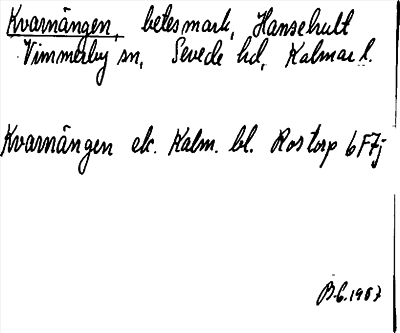 Kvarnängen, betesmark, Hansehult
Vimmerby sn, Sevede hd, Kalmar l.
Kvarnängen ek. Kalm. bl. Rostorp 6F7j
B.C. 1967